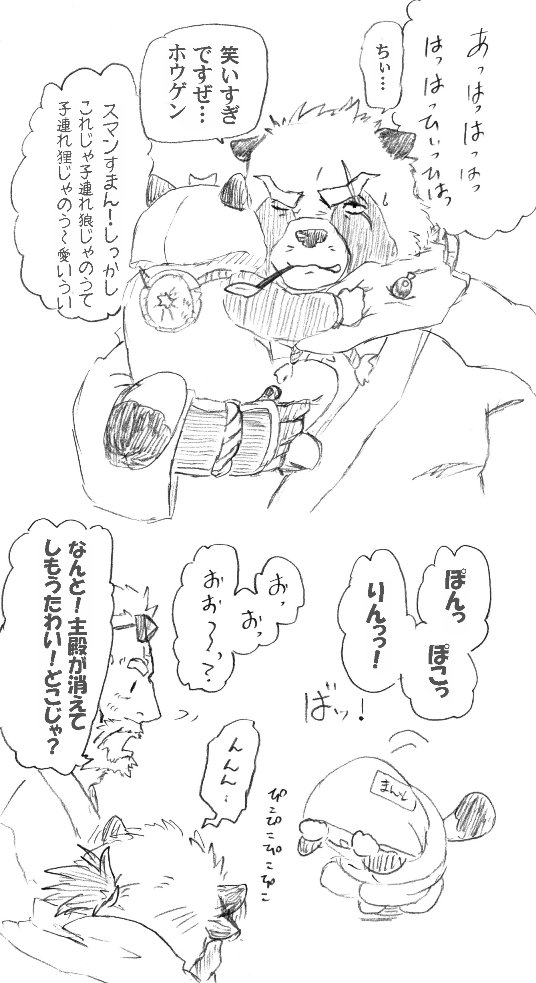 あっはっはっはっ
はっはっひぃっひはっ
ちぃ…
笑いすぎ
ですぜ…
ホウゲン
スマンすまん!しっかし
これじゃ子連れ狼じゃのうて
子連れ狸じゃのう〜愛いうい
ぽんっ
ぽこっ
りんっっ!
おっ
おっ
おお〜っ?
なんと!主殿が消えて
しもうたわい!どこじゃ?
バッ!
まんと
んんん…
ぴこぴこぴこぴこ